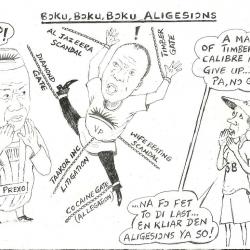 BOKU, BOKU, BOKU ALIGESIONS
?!
DIAMOND
GATE
AL JAZEERA
SCANDAL
TIMBER
GATE
TAAKOR INC
LITIGATION
V P
WIFE BEATING
SCANDAL
COCAINE GATE
ALLEGATION
PREXO
A MA
OF TIMBE
CALIBRE
GIVE UP...
PA, NO G
...NA FO FET
TO DI LAST...
EN KLIAR DEN
ALIGESIONS YA SO!
SB